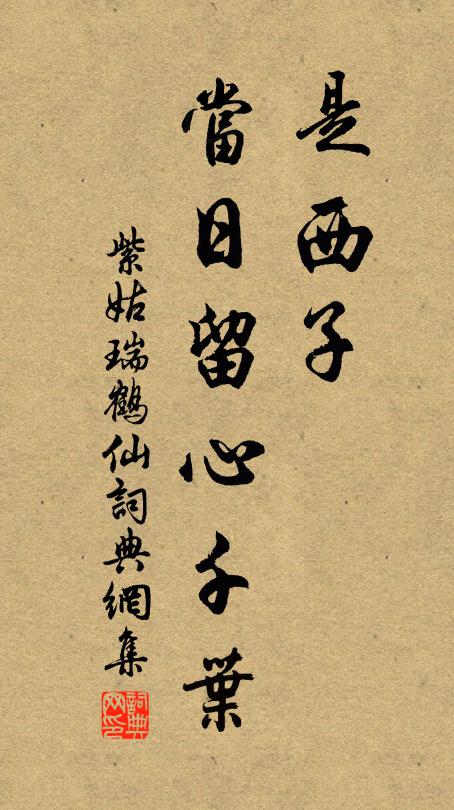 是西子
當日留心千葉
紫姑瑞鶴仙詞典網集
詞典网印